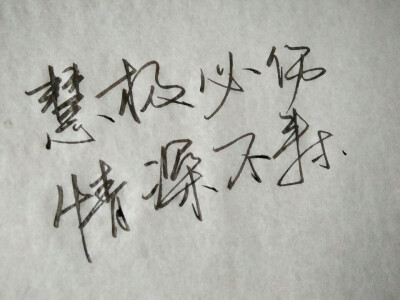 慧极必伤
情深不寿